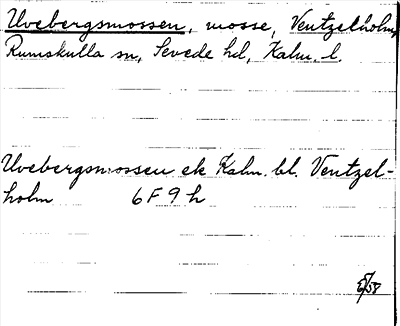 Uvebergsmossen, mosse, Ventzelholm,
Rumskulla sn, Sevede hd, Kalm. l.
Uvebergsmossen ek Kalm. bl. Ventzel-
holm 6 F 9 h